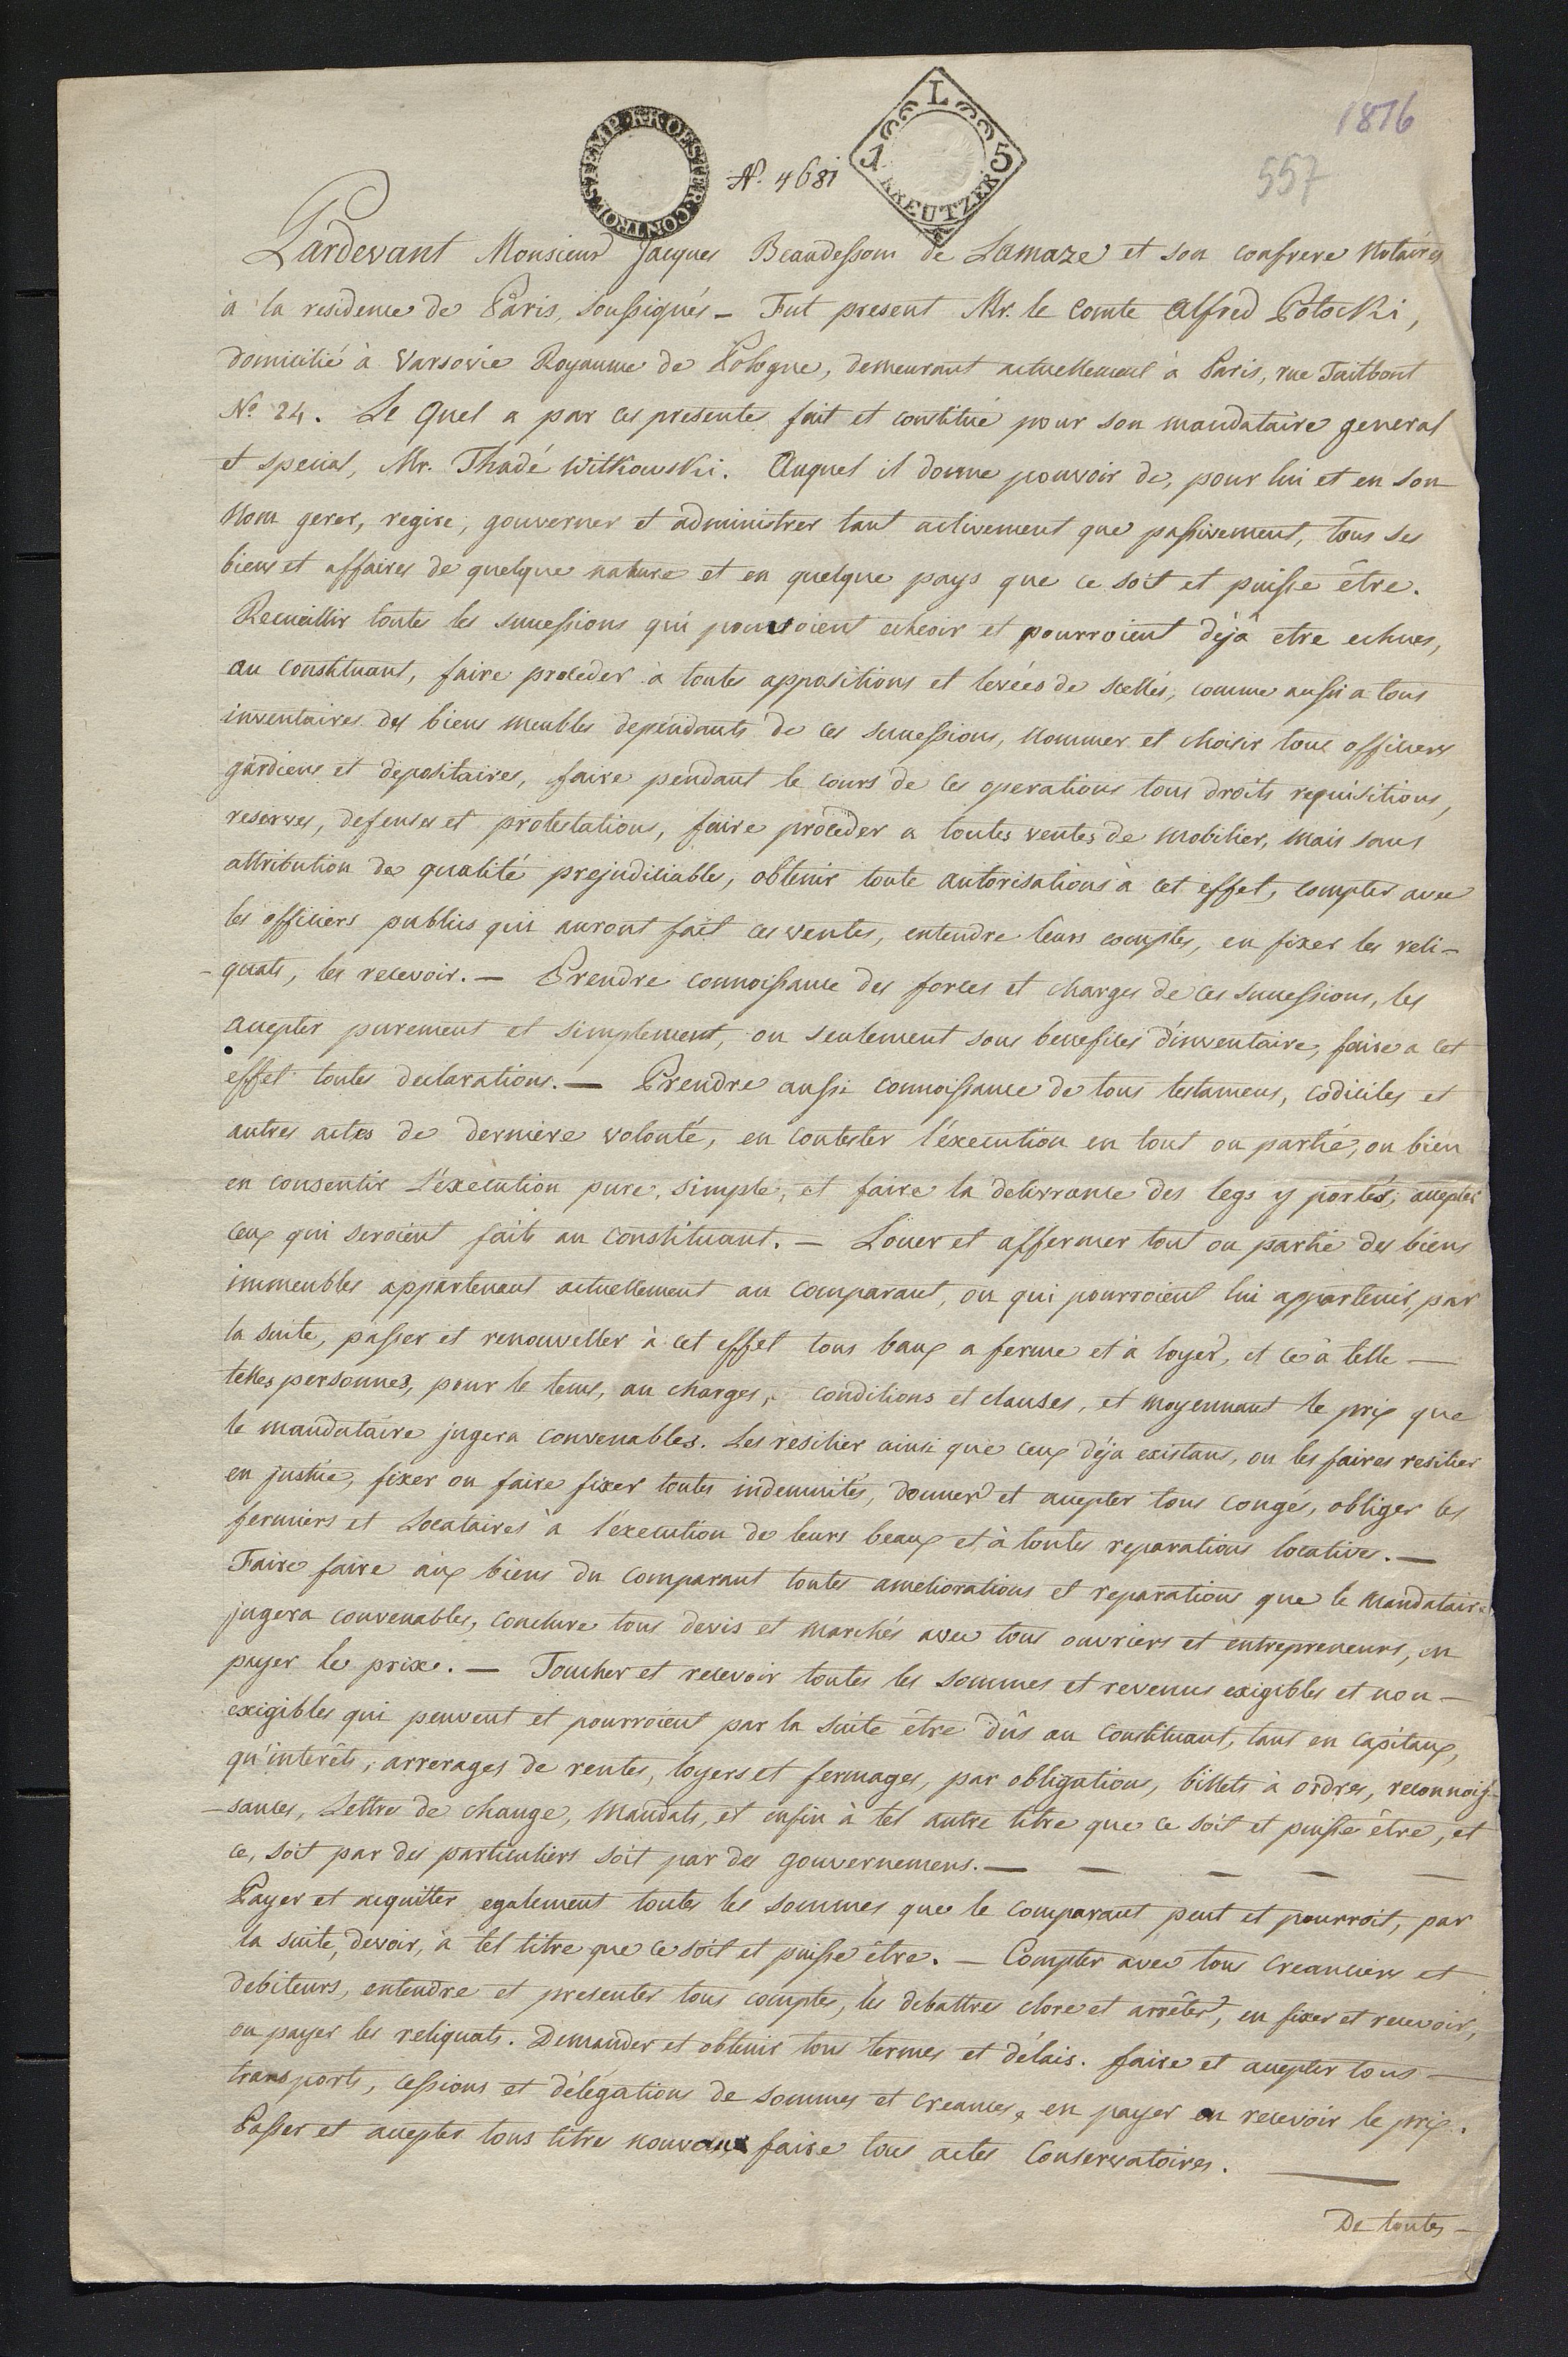 1816
557
K.K. OESTER. CONTROL STEMP.
N. 4681
15 KREUTZER
Pardevant Monsieur Jacques Beaudesson de Lamaze et son confrere Notaires
à la residence de Paris, Soussignés — Fut present Mr. le Comte Alfred Potocki,
domicilié à Varsovie Royaume de Pologne, demeurant actuellement à Paris, rue Taitbout
No 24. Le quel a par ces presente fait et constitué pour son mandataire general
et special, Mr. Thadé Witkowski. Auquel il donne pouvoir de, pour lui et en son
Nom gerer, regire, gouverner et administrer tant activement que passivement, tous ses
biens et affaires de quelque nature et en quelque pays que ce soit et puisse être.
Recueillir toutes les successions qui pourroient echeoir et pourroient déjà etre echues,
au constituant, faire proceder à toutes appositions et levées de scellés, comme aussi a tous
inventaires des biens meubles dependants de ces successions, Nommer et choisir tous officiers
gardiens et depositaires, faire pendant le cours de ces operations tous droits requisitions,
reserves, defenses et protestations, faire procéder a toutes ventes de Mobilier, mais sans
attribution de qualité prejudiciable, obtenir toute autorisations à cet effet, compter avec
les officiers publics qui auront fait ces ventes, entendre leurs comptes, en fixer les reli-
-quats, les recevoir. — Prendre connoissance des forces et charges de ces successions, les
accepter purement et simplement, ou seulement sous benefices d'inventaire, faire a cet
effet toutes declarations. — Prendre aussi connoissance de tous testamens, codiciles et
autres actes de derniere volonté, en contester l'éxecution en tout ou partie, ou bien
en consentir l'éxecution pure, simple, et faire la delivrance des legs y portés, accepter
ceux qui seroient faits au Constituant. — Louer et affermer tout ou partie des biens
immeubles appartenant actuellement au comparant, ou qui pourroient lui appartenir, par
la suite, passer et renouveller à cet effet tous baux a ferme et à loyer, et ce à telle —
telles personnes, pour le tems, au charges, conditions et clauses, et moyennant le prix que
le mandataire jugera convenables. Les résilier ainsi que ceux déja existans, ou les faires resilier
en justice, fixer ou faire fixer toutes indemnités, donner et accepter tous congés, obliger les
fermiers et Locataires à l'éxecution de leurs beaux et à toutes reparations locatives. —
Faire faire aux biens du comparant toutes ameliorations et reparations que le Mandataire
jugera convenables, conclure tous devis et marchés avec tous ouvriers et entrepreneurs, en
payer le prixe. — Toucher et recevoir toutes les sommes et revenus exigibles et non —
exigibles qui peuvent et pourroient par la suite être dûs au Constituant, tant en capitaux,
qu'intérêts, arrerages de rentes, loyers et fermages, par obligations, billets à ordres, reconnois-
-sances, Lettres de change, Mandats, et enfin à tel autre titre que ce soit et puisse être, et
ce, soit par des particuliers soit par des gouvernemens. — — — — —
Payer et acquitter egalement toutes les sommes que le comparant peut et pourroit, par
la suite, devoir, à tel titre que ce soit et puisse être. — Compter avec tous creanciers et
debiteurs, entendre et presenter tous comptes, les debattres clore et arrêter, en fixer et recevoir,
ou payer les reliquats. Demander et obtenir tous termes et délais. faire et accepter tous —
transports, cessions et délégations de sommes et creances, en payer ou recevoir le prix.
Passer et accepter tous titres nouveaux faire tous actes Conservatoires. —
De toutes —